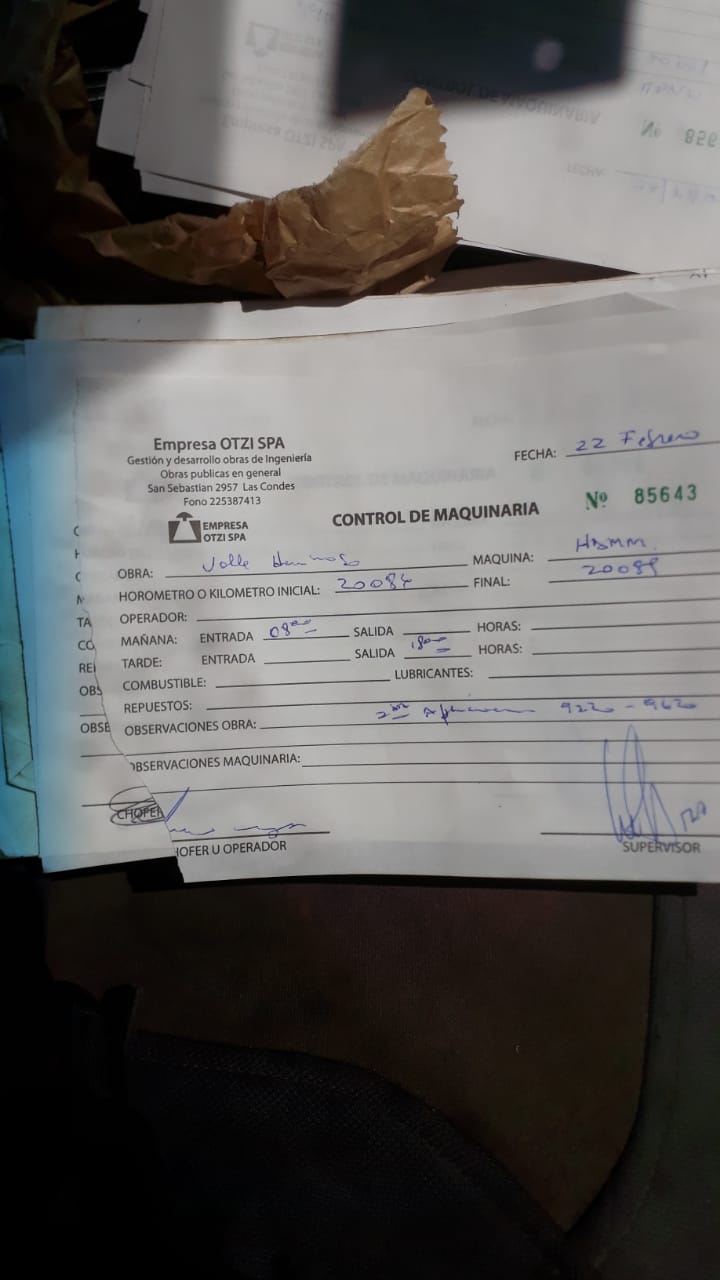 Empresa OTZI SPA
Gestión y desarrollo obras de Ingeniería
Obras publicas en general
San Sebastian 2957 Las Condes
Fono 225387413
EMPRESA
OTZI SPA
FECHA: 22 Febrero
CONTROL DE MAQUINARIA
Nº 85643
OBRA: Valle Hermoso
MAQUINA: HAMM.
HOROMETRO O KILOMETRO INICIAL: 20084
FINAL: 20089
OPERADOR:
MAÑANA: ENTRADA 08:00 SALIDA HORAS:
TARDE: ENTRADA SALIDA 18:00 HORAS:
COMBUSTIBLE: LUBRICANTES:
REPUESTOS:
OBSERVACIONES OBRA: 9220 - 9620
OBSERVACIONES MAQUINARIA:
CHOFER
HOFER U OPERADOR
SUPERVISOR